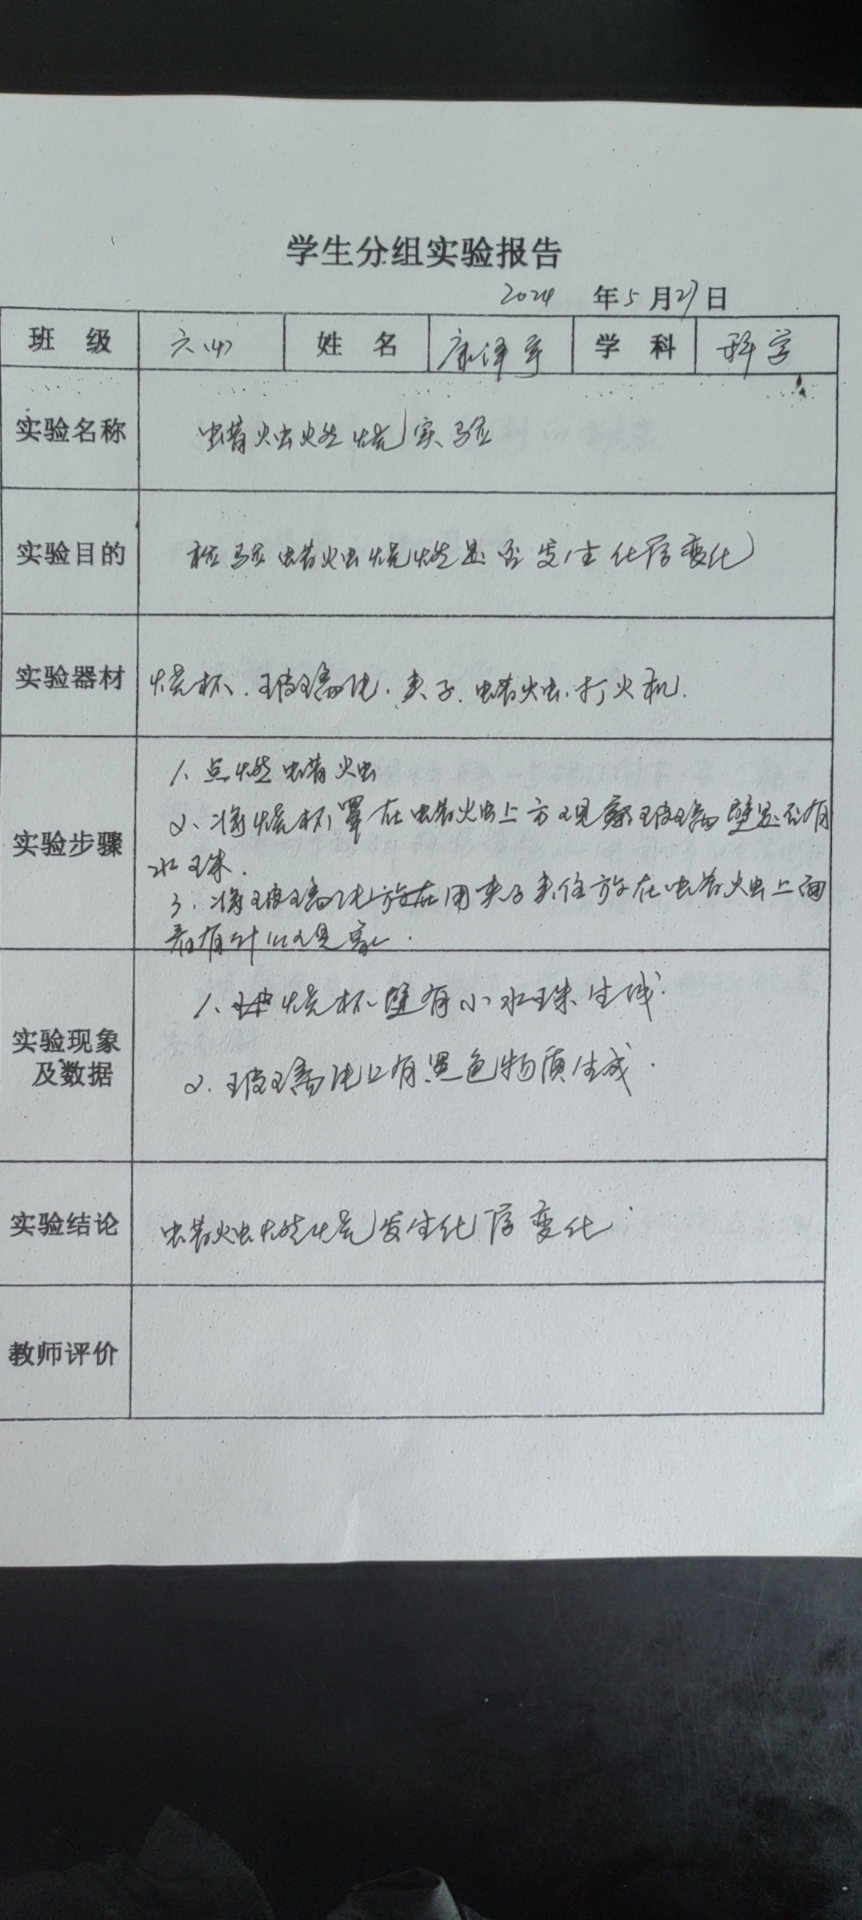 学生分组实验报告
2024 年5月27日
班 级 六(4) 姓 名 康泽宇 学 科 科学
实验名称 蜡烛燃烧实验
实验目的 检验蜡烛烧燃是否发生化学变化
实验器材 烧杯、玻璃片、夹子、蜡烛、打火机.
实验步骤
1、点燃蜡烛
2、将烧杯罩在蜡烛上方观察玻璃壁是否有
水珠.
3、将玻璃片放在用夹子夹住放在蜡烛上面
看有什么现象.
实验现象
及数据
1、烧杯壁有小水珠生成.
2、玻璃片上有黑色物质生成.
实验结论 蜡烛燃烧发生化学变化.
教师评价